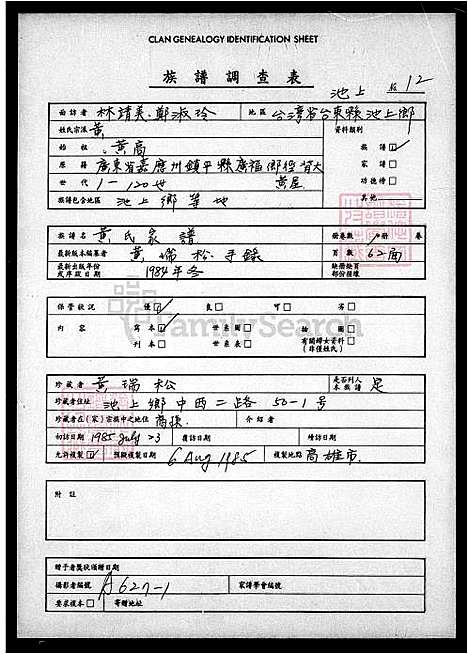 CLAN GENEALOGY IDENTIFICATION SHEET
族譜調查表
池上 12
面訪者 林靖美.鄭淑玲 地區 台灣省台東縣池上鄉
姓氏宗派 黃 資料類別
始祖 黃高 族譜☑
原籍 廣東省嘉應州鎮平縣廣福鄉徑背大黃屋 家譜□
世代 1-120世 功德榜□
族譜包含地區 池上鄉等地 其他
族譜名 黃氏家譜 冊卷數 1冊 卷
最新版本編纂者 黃瑞松手錄 頁數 62面
最新出版年份或序跋日期 1984年冬 缺冊缺頁部份接壤
保管狀況 優☑ 良□ 可□ 劣□
內容 寫本☑ 世系圖□ 插圖□
刊本□ 世系表□ 有關婦女資料(非僅姓氏)□
FamilySearch
珍藏者 黃瑞松 是否列入本族譜 是
珍藏者住址 池上鄉中西二路50-1號
珍藏者在(家)宗族中之地位 裔孫 介紹者
初訪日期 1985 July 23 複訪日期 續訪日期
允許複製☑ 預擬複製日期 6 Aug 1985 複製地點 高雄市
附註
贈予者獎狀頒贈日期
攝影者編號 A627-1 家譜學會編號
要求複本□ 寄贈地址